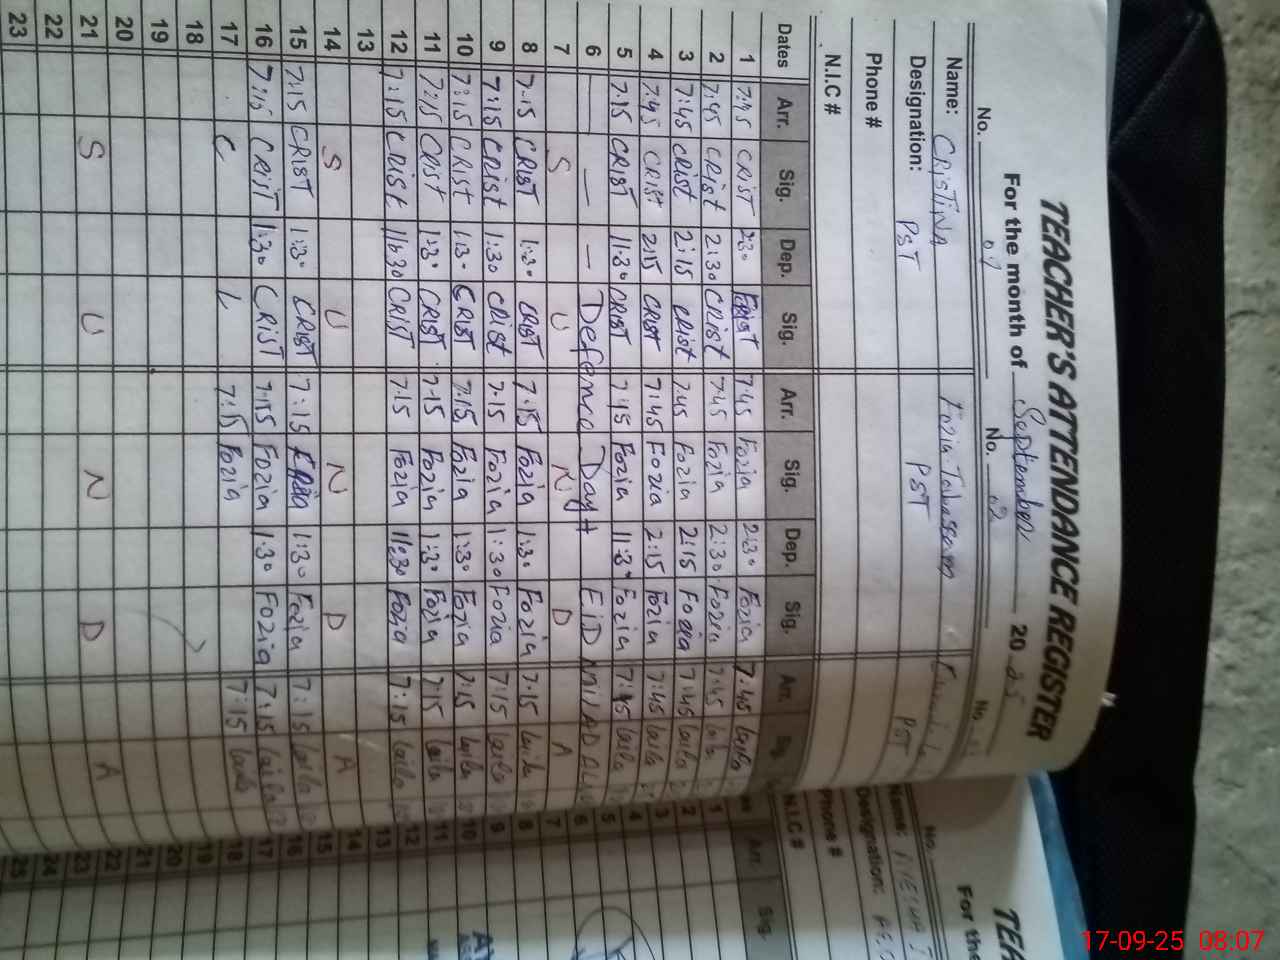 TEACHER'S ATTENDANCE REGISTER
For the month of September 2025
No. 01 No. 02 No.
Name: CRISTINA Fozia Tabassam
Designation: PST PST PST
Phone #
N.I.C #
Dates Arr. Sig. Dep. Sig. Arr. Sig. Dep. Sig. Arr. Sig.
1 7:45 CRIST 2:30 Crist 7:45 Fozia 2:30 Fozia 7:45 Laila
2 7:45 CRIST 2:30 CRIST 7:45 Fozia 2:30 Fozia 7:45 Laila
3 7:45 CRIST 2:15 CRIST 7:45 Fozia 2:15 Fozia 7:45 Laila
4 7:45 CRIST 2:15 CRIST 7:45 Fozia 2:15 Fozia 7:45 Laila
5 7:15 CRIST 11:30 CRIST 7:45 Fozia 11:30 Fozia 7:45 Laila
6 — — — Defence Day + EID MILAD
7 S U N D A
8 7:15 CRIST 1:30 CRIST 7:15 Fozia 1:30 Fozia 7:15 Laila
9 7:15 CRIST 1:30 CRIST 7:15 Fozia 1:30 Fozia 7:15 Laila
10 7:15 CRIST 1:30 CRIST 7:15 Fozia 1:30 Fozia 7:15 Laila
11 7:15 CRIST 1:30 CRIST 7:15 Fozia 1:30 Fozia 7:15 Laila
12 7:15 CRIST 11:30 CRIST 7:15 Fozia 11:30 Fozia 7:15 Laila
13
14 S U N D A
15 7:15 CRIST 1:30 CRIST 7:15 Fozia 1:30 Fozia 7:15 Laila
16 7:15 CRIST 1:30 CRIST 7:15 Fozia 1:30 Fozia 7:15 Laila
17 C L 7:15 Fozia 7:15 Laila
18
19
20
21 S U N D A
22
23
TEA
For the
No.
Name:
Designation:
Phone #
N.I.C #
Arr. Sig.
1
2
3
4
5
6
7
8
9
10
11
12
13
14
15
16
17
18
19
20
21
22
23
24
25
17-09-25 08:07